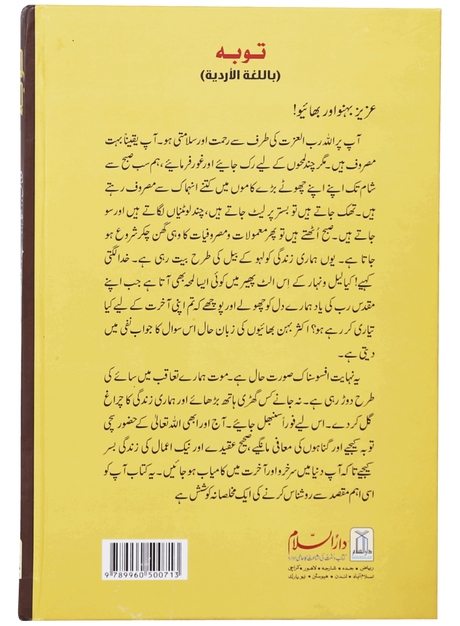 توبہ
(باللغة الأردية)
عزیز بہنو اور بھائیو!
آپ پر اللہ رب العزت کی طرف سے رحمت اور سلامتی ہو۔ آپ یقیناً بہت
مصروف ہیں۔ مگر چند لمحوں کے لیے رک جائیے اور غور فرمائیے، ہم سب صبح سے
شام تک اپنے اپنے چھوٹے بڑے کاموں میں کتنے انہماک سے مصروف رہتے
ہیں۔ تھک جاتے ہیں تو بستر پر لیٹ جاتے ہیں، چند لوٹنیاں لگاتے ہیں اور سو
جاتے ہیں۔ صبح اُٹھتے ہیں تو پھر معمولات و مصروفیات کا وہی گھن چکر شروع ہو
جاتا ہے۔ یوں ہماری زندگی کولہو کے بیل کی طرح بیت رہی ہے۔ خدا لگتی
کہیے! کیا لیل و نہار کے اس الٹ پھیر میں کوئی ایسا لمحہ بھی آتا ہے جب اپنے
مقدس رب کی یاد ہمارے دل کو چھولے اور پوچھے کہ تم اپنی آخرت کے لیے کیا
تیاری کر رہے ہو؟ اکثر بہن بھائیوں کی زبان حال اس سوال کا جواب نفی میں
دیتی ہے۔
یہ نہایت افسوسناک صورت حال ہے۔ موت ہمارے تعاقب میں سائے کی
طرح دوڑ رہی ہے۔ نہ جانے کس گھڑی ہاتھ بڑھائے اور ہماری زندگی کا چراغ
گل کر دے۔ اس لیے فوراً سنبھل جائیے۔ آج اور ابھی اللہ تعالیٰ کے حضور سچی
توبہ کیجیے اور گناہوں کی معافی مانگیے صحیح عقیدے اور نیک اعمال کی زندگی بسر
کیجیے تاکہ آپ دنیا میں سرخرو اور آخرت میں کامیاب ہو جائیں۔ یہ کتاب آپ کو
اسی اہم مقصد سے روشناس کرنے کی ایک مخلصانہ کوشش ہے
دارالسلام
ریاض • جدہ • شارجہ • لاہور • کراچی
اسلام آباد • لندن • ہیوسٹن • نیو یارک
9 789960 500713